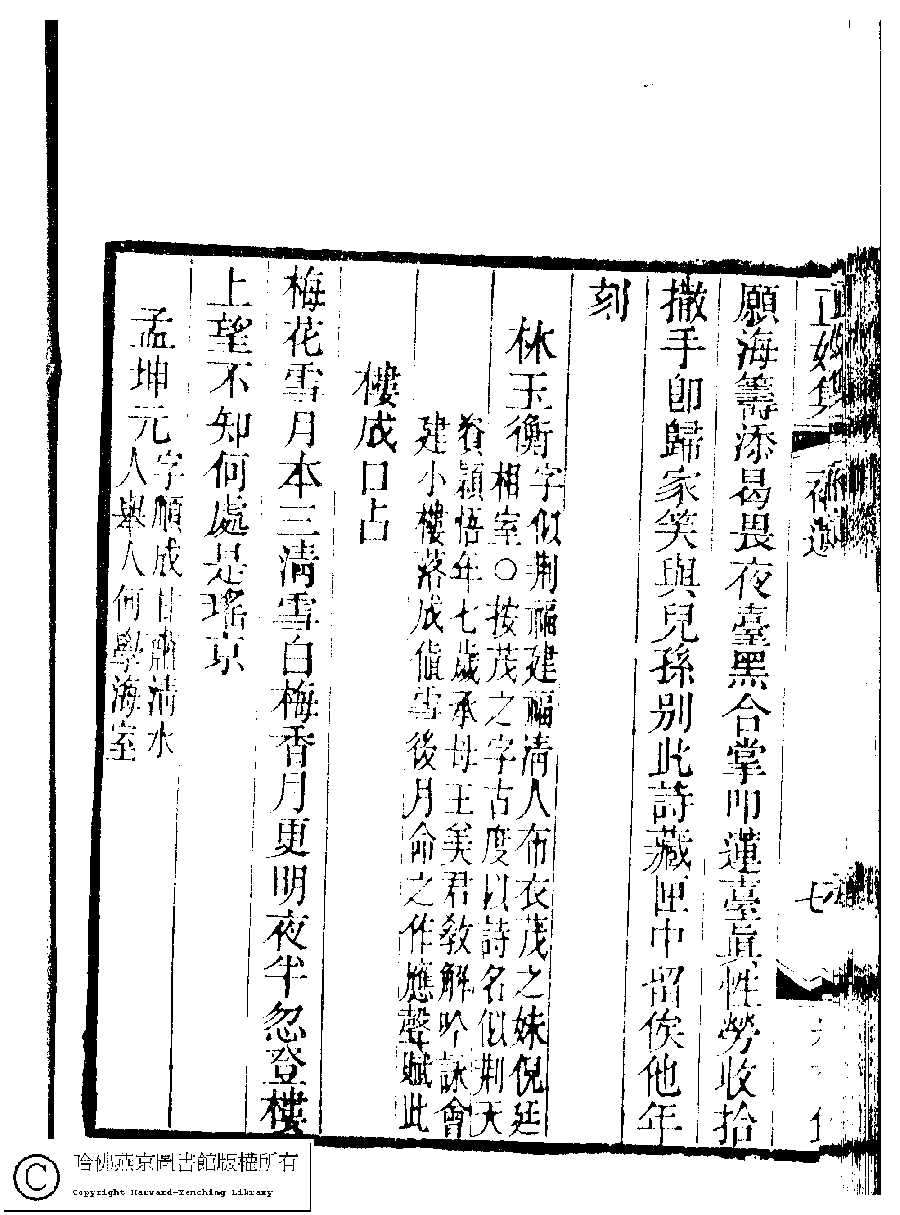 正始集
補遺
七
願海籌添曷畏夜臺黑合掌叩蓮臺眞性勞收拾
撒手卽歸家笑與兒孫别此詩藏匣中留俟他年
刻
林玉衡字似荆福建福清人布衣茂之妹倪廷
相室○按茂之字古度以詩名似荆天
資頴悟年七歲承母王美君敎解吟詠會
建小樓落成值雪後月命之作應聲賦此
樓成口占
梅花雪月本三淸雪白梅香月更明夜半忽登樓
上望不知何處是瑤京
孟坤元字順成甘肅淸水
人舉人何學海室
哈佛燕京圖書館版權所有
Copyright Harvard-Yenching Library